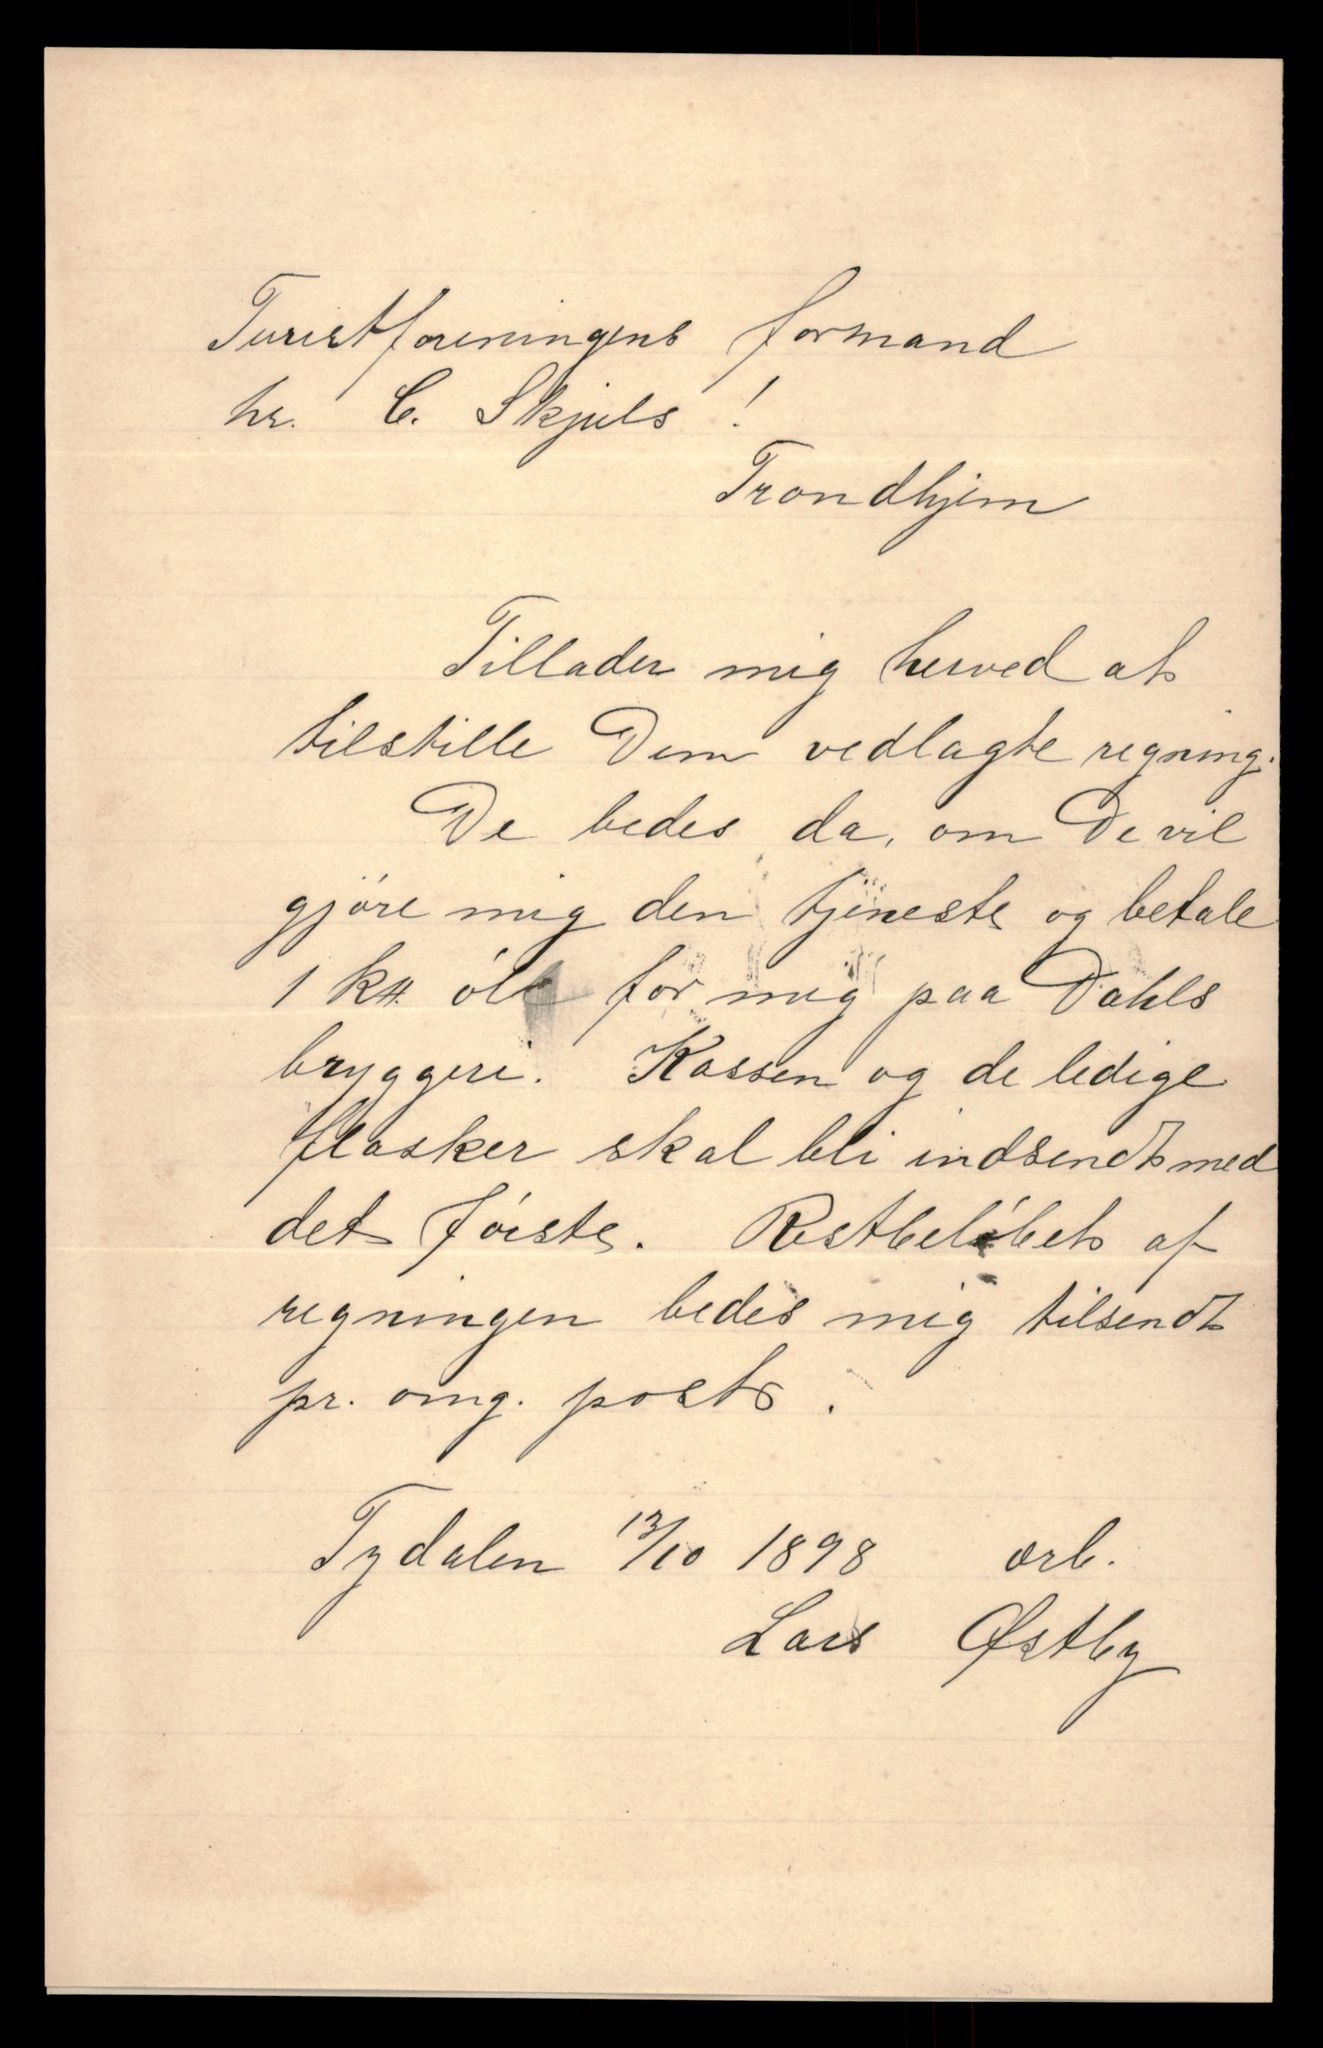 Turistforeningens formand
hr. C. Skjuls!
Trondhjem
Tillader mig herved at
tilstille Dem vedlagte regning.
De bedes da, om De vil
gjøre mig den tjeneste og betale
1 ks. øll for mig paa Dahls
bryggeri. Kassen og de ledige
flasker skal bli indsendt med
det første. Restbeløbet af
regningen bedes mig tilsendt
pr. omg. post.
Tydalen 13/10 1898 ærb.
Lars Østby